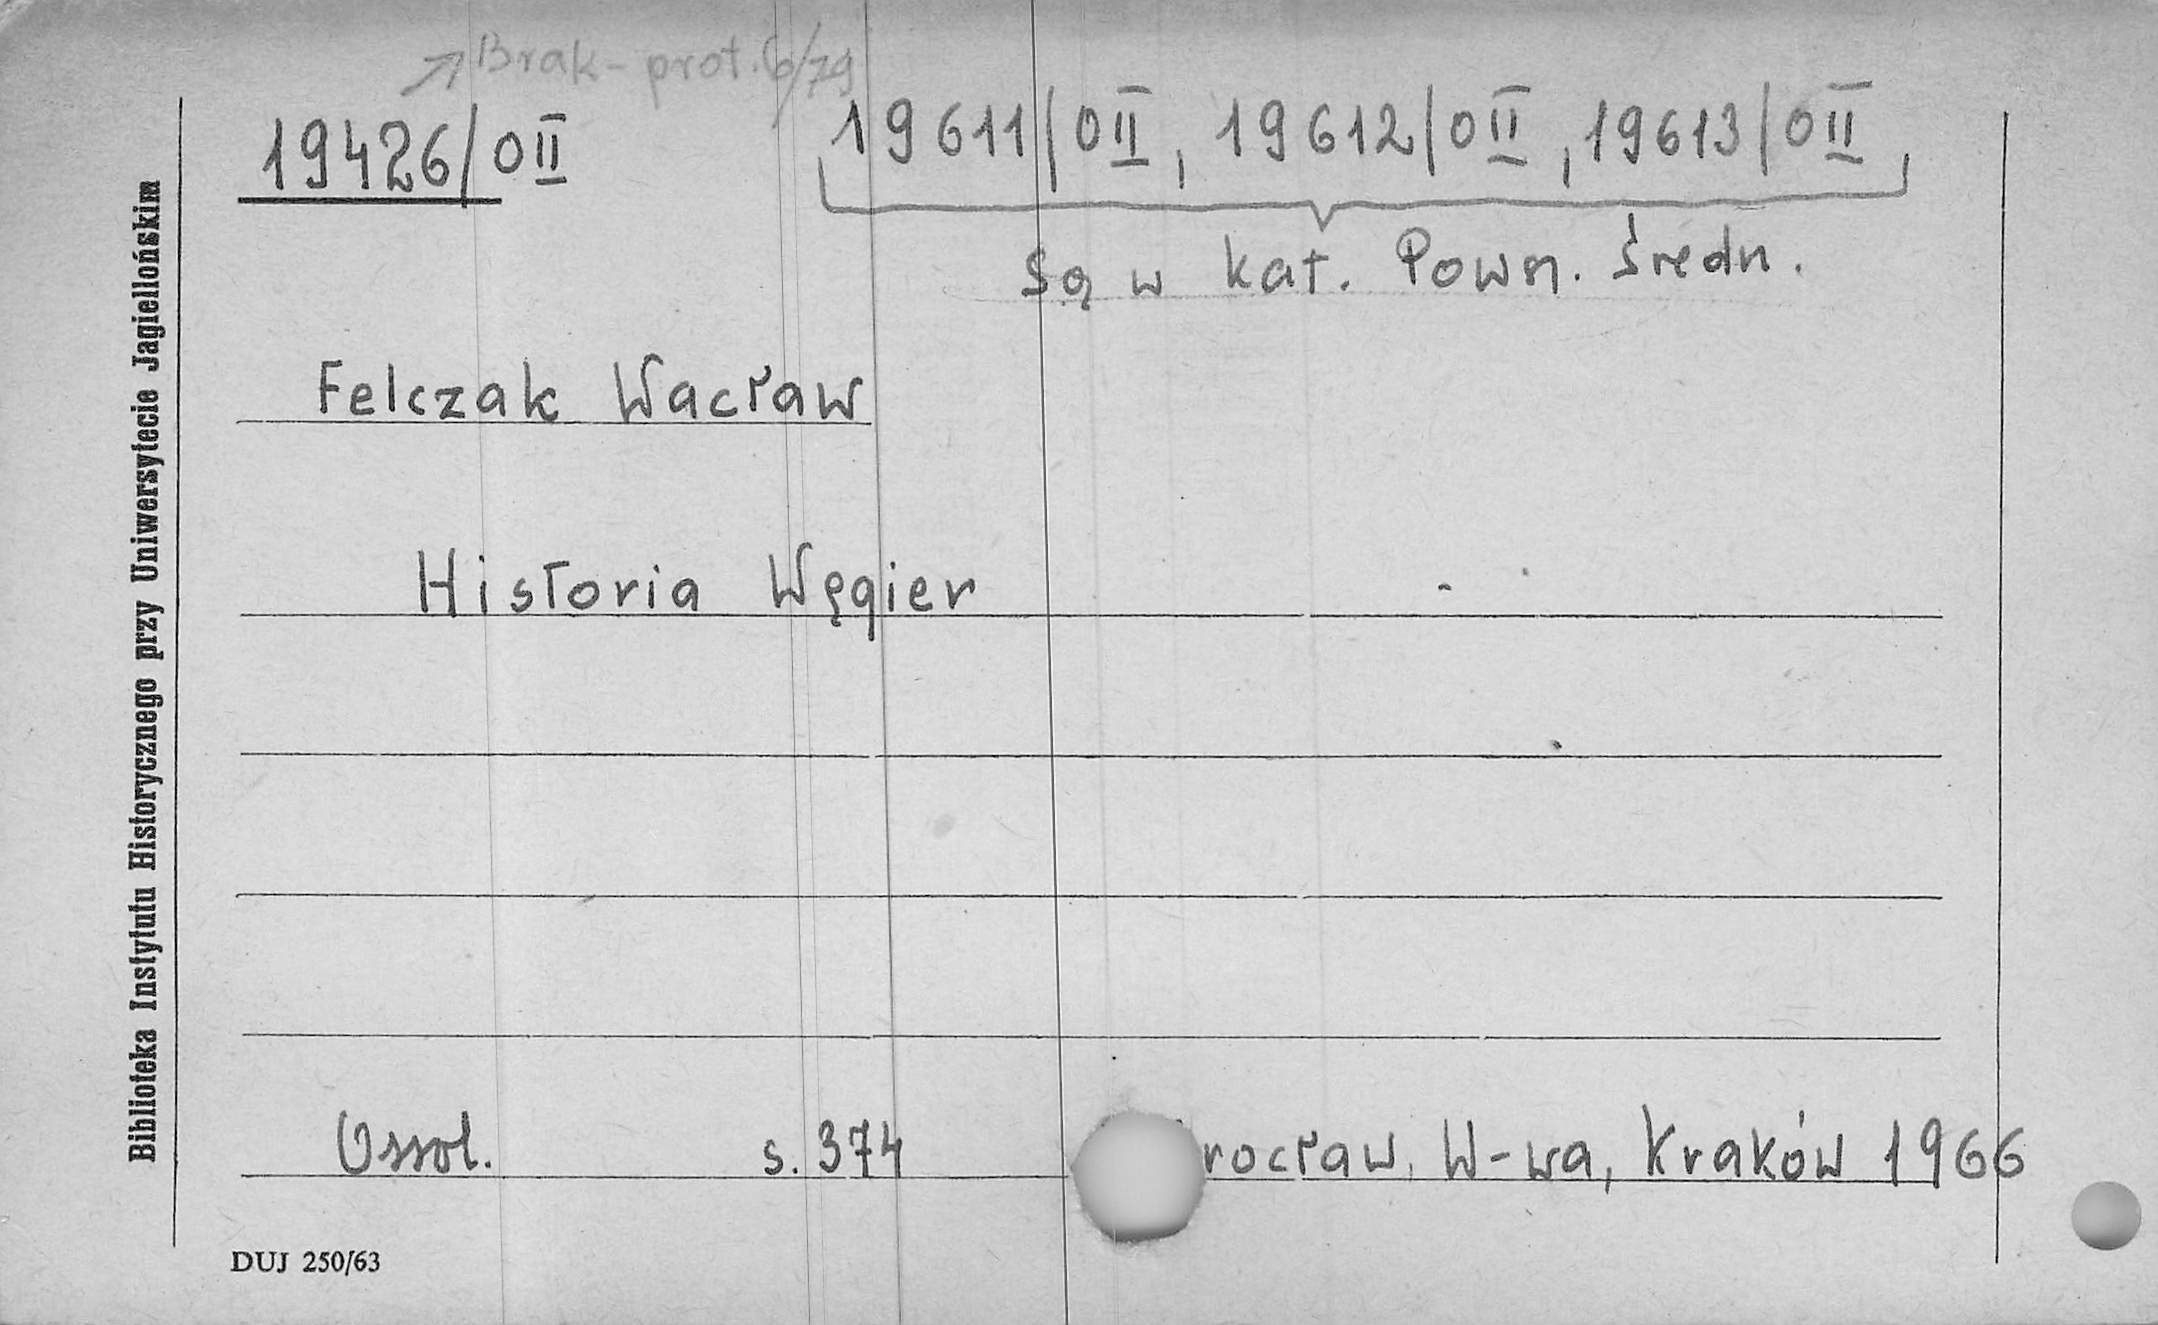 Brak - prot. 6/79
19426/0II 19611/0II, 19612/0II, 19613/0II,
Są w kat. Pown. Średn.
Felczak Wacław
Historia Węgier
Ossol. s. 374 rocław, W-wa, Kraków 1966
DUJ 250/63
Biblioteka Instytutu Historycznego przy Uniwersytecie Jagiellońskim